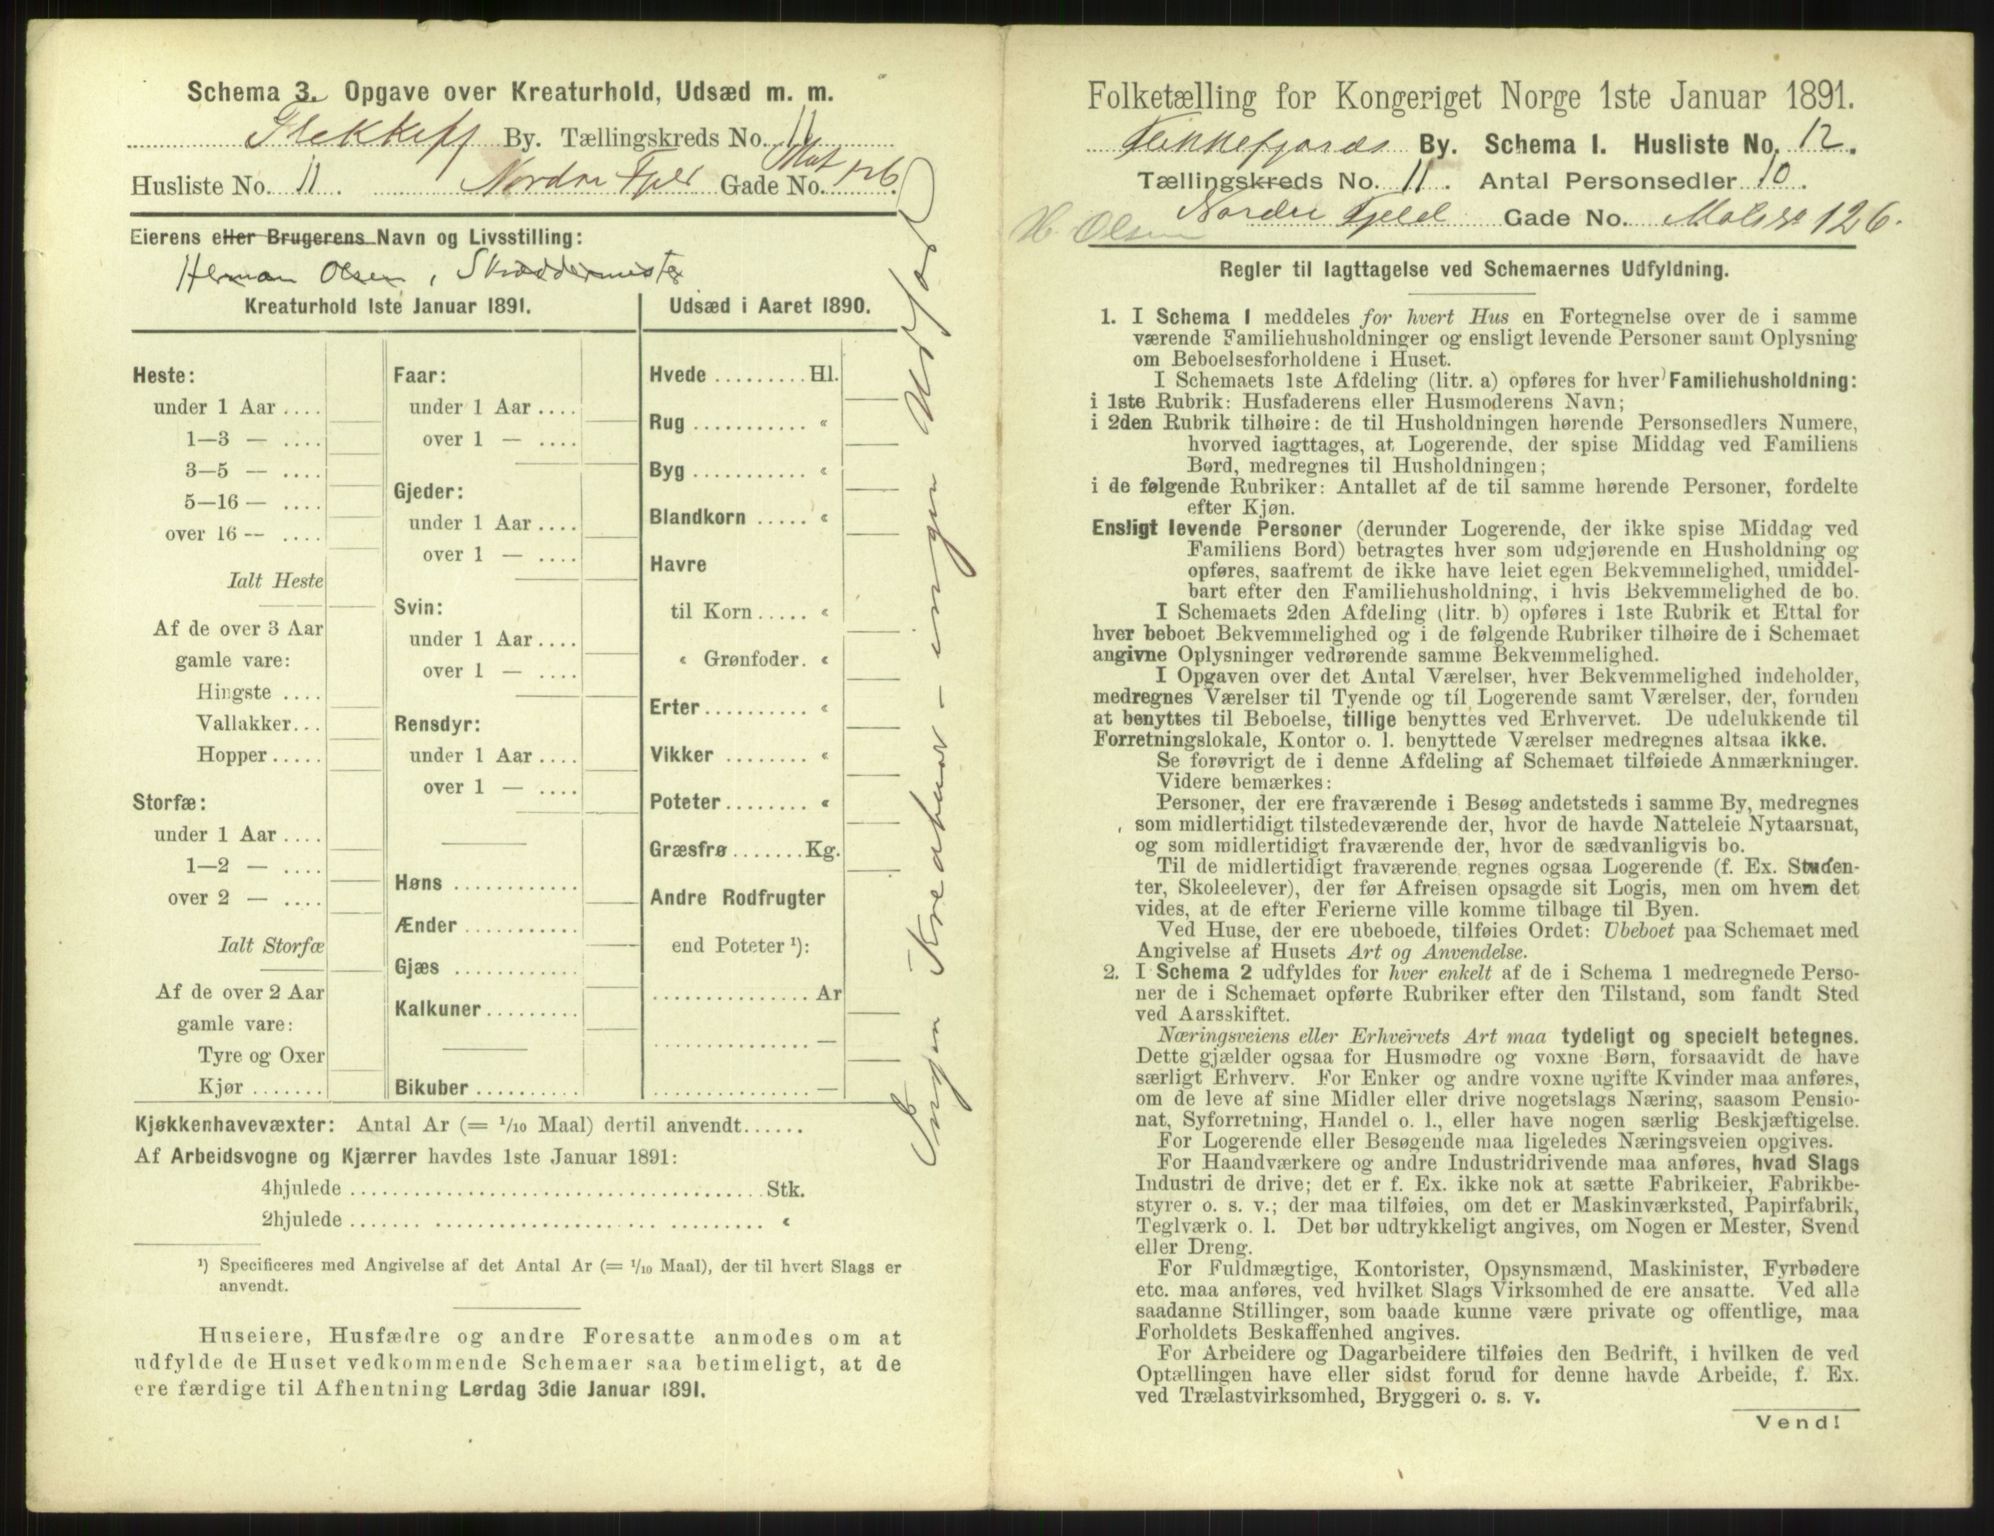 Schema 3. Opgave over Kreaturhold, Udsæd m. m.
Flekkefj By. Tællingskreds No. 11
Husliste No. 11. Nordre Fjeld Gade No. Mat 126
Eierens eller Brugerens Navn og Livsstilling:
Herman Olsen, Skræddermester
Kreaturhold 1ste Januar 1891.
Udsæd i Aaret 1890.
Heste:
under 1 Aar ....
1—3 — ....
3—5 — ....
5—16 — ....
over 16 — ....
Ialt Heste
Af de over 3 Aar
gamle vare:
Hingste ....
Vallakker...
Hopper.....
Storfæ:
under 1 Aar ....
1—2 — ....
over 2 — ....
Ialt Storfæ
Af de over 2 Aar
gamle vare:
Tyre og Oxer
Kjør .......
Faar:
under 1 Aar ....
over 1 — ....
Gjeder:
under 1 Aar ....
over 1 — ....
Svin:
under 1 Aar ....
over 1 — ....
Rensdyr:
under 1 Aar ....
over 1 — ....
Høns ............
Ænder ...........
Gjæs ............
Kalkuner .........
Bikuber ..........
Hvede ......... Hl.
Rug ........... «
Byg ........... «
Blandkorn ..... «
Havre
til Korn ..... «
« Grønfoder. «
Erter .......... «
Vikker ........ «
Poteter ........ «
Græsfrø ....... Kg.
Andre Rodfrugter
end Poteter ¹):
............... Ar
............... —
............... —
Ingen Kreaturer - ingen Udsæd
Kjøkkenhavevæxter: Antal Ar (= 1/10 Maal) dertil anvendt......
Af Arbeidsvogne og Kjærrer havdes 1ste Januar 1891:
4hjulede ........................................ Stk.
2hjulede ........................................ «
¹) Specificeres med Angivelse af det Antal Ar (= 1/10 Maal), der til hvert Slags er
anvendt.
Huseiere, Husfædre og andre Foresatte anmodes om at
udfylde de Huset vedkommende Schemaer saa betimeligt, at de
ere færdige til Afhentning Lørdag 3die Januar 1891.
Folketælling for Kongeriget Norge 1ste Januar 1891.
Flekkefjords By. Schema I. Husliste No. 12.
Tællingskreds No. 11. Antal Personsedler 10.
H. Olsen Nordre Fjeld Gade No. 126.
Regler til Iagttagelse ved Schemaernes Udfyldning.
1. I Schema I meddeles for hvert Hus en Fortegnelse over de i samme
værende Familiehusholdninger og ensligt levende Personer samt Oplysning
om Beboelsesforholdene i Huset.
I Schemaets 1ste Afdeling (litr. a) opføres for hver Familiehusholdning:
i 1ste Rubrik: Husfaderens eller Husmoderens Navn;
i 2den Rubrik tilhøire: de til Husholdningen hørende Personsedlers Numere,
hvorved iagttages, at Logerende, der spise Middag ved Familiens
Bord, medregnes til Husholdningen;
i de følgende Rubriker: Antallet af de til samme hørende Personer, fordelte
efter Kjøn.
Ensligt levende Personer (derunder Logerende, der ikke spise Middag ved
Familiens Bord) betragtes hver som udgjørende en Husholdning og
opføres, saafremt de ikke have leiet egen Bekvemmelighed, umiddel-
bart efter den Familiehusholdning, i hvis Bekvemmelighed de bo.
I Schemaets 2den Afdeling (litr. b) opføres i 1ste Rubrik et Ettal for
hver beboet Bekvemmelighed og i de følgende Rubriker tilhøire de i Schemaet
angivne Oplysninger vedrørende samme Bekvemmelighed.
I Opgaven over det Antal Værelser, hver Bekvemmelighed indeholder,
medregnes Værelser til Tyende og til Logerende samt Værelser, der, foruden
at benyttes til Beboelse, tillige benyttes ved Erhvervet. De udelukkende til
Forretningslokale, Kontor o. l. benyttede Værelser medregnes altsaa ikke.
Se forøvrigt de i denne Afdeling af Schemaet tilføiede Anmærkninger.
Videre bemærkes:
Personer, der ere fraværende i Besøg andetsteds i samme By, medregnes
som midlertidigt tilstedeværende der, hvor de havde Natteleie Nytaarsnat,
og som midlertidigt fraværende der, hvor de sædvanligvis bo.
Til de midlertidigt fraværende regnes ogsaa Logerende (f. Ex. Studen-
ter, Skoleelever), der før Afreisen opsagde sit Logis, men om hvem det
vides, at de efter Ferierne ville komme tilbage til Byen.
Ved Huse, der ere ubeboede, tilføies Ordet: Ubeboet paa Schemaet med
Angivelse af Husets Art og Anvendelse.
2. I Schema 2 udfyldes for hver enkelt af de i Schema 1 medregnede Perso-
ner de i Schemaet opførte Rubriker efter den Tilstand, som fandt Sted
ved Aarsskiftet.
Næringsveiens eller Erhvervets Art maa tydeligt og specielt betegnes.
Dette gjælder ogsaa for Husmødre og voxne Børn, forsaavidt de have
særligt Erhverv. For Enker og andre voxne ugifte Kvinder maa anføres,
om de leve af sine Midler eller drive nogetslags Næring, saasom Pensio-
nat, Syforretning, Handel o. l., eller have nogen særlig Beskjæftigelse.
For Logerende eller Besøgende maa ligeledes Næringsveien opgives.
For Haandværkere og andre Industridrivende maa anføres, hvad Slags
Industri de drive; det er f. Ex. ikke nok at sætte Fabrikeier, Fabrikbe-
styrer o. s. v.; der maa tilføies, om det er Maskinværksted, Papirfabrik,
Teglværk o. l. Det bør udtrykkeligt angives, om Nogen er Mester, Svend
eller Dreng.
For Fuldmægtige, Kontorister, Opsynsmænd, Maskinister, Fyrbødere
etc. maa anføres, ved hvilket Slags Virksomhed de ere ansatte. Ved alle
saadanne Stillinger, som baade kunne være private og offentlige, maa
Forholdets Beskaffenhed angives.
For Arbeidere og Dagarbeidere tilføies den Bedrift, i hvilken de ved
Optællingen have eller sidst forud for denne havde Arbeide, f. Ex.
ved Trælastvirksomhed, Bryggeri o. s. v.
Vend!